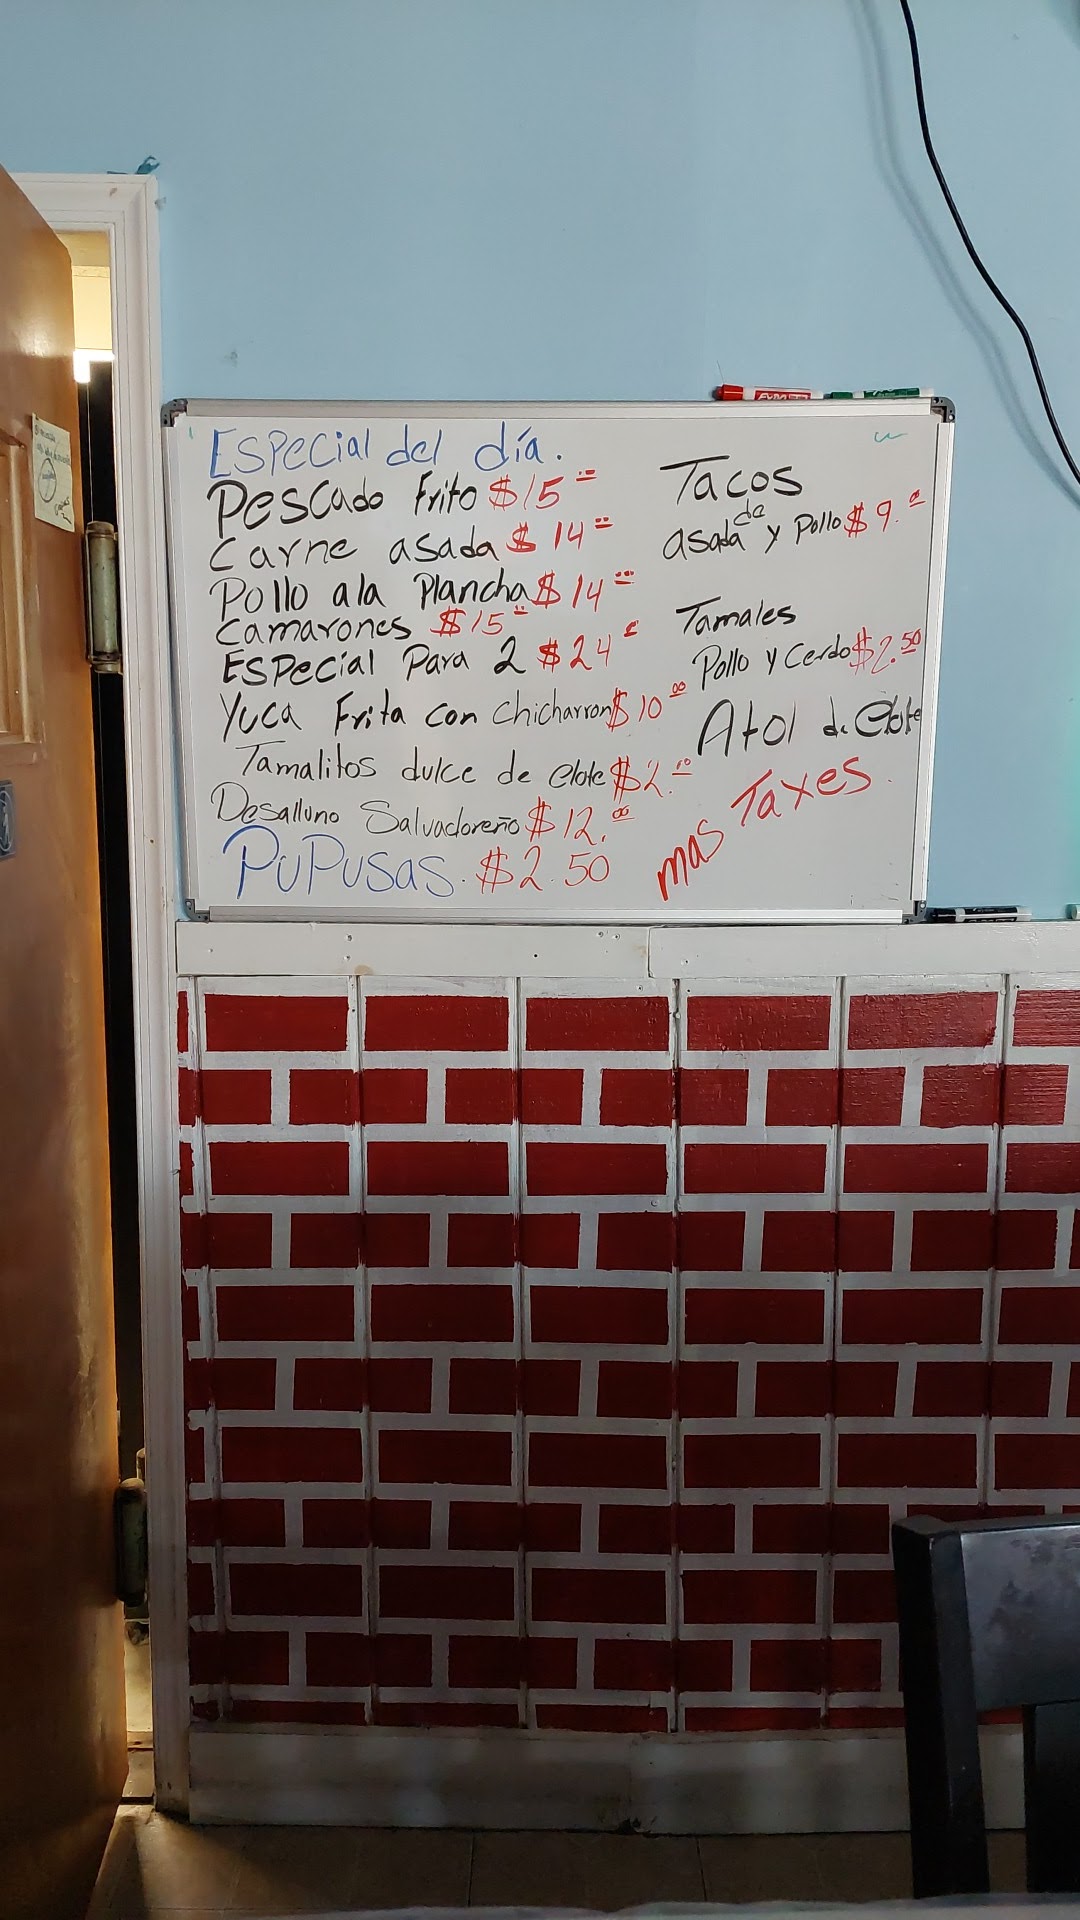 Especial del día.
Pescado Frito $15.00
Carne asada $14.00
Pollo ala Plancha $14.00
Camarones $15.00
Especial Para 2 $24
Yuca Frita con Chicharron $10.00
Tamalitos dulce de elote $2.00
Desalluno Salvadoreño $12.00
PuPusas. $2.50
Tacos
de
asada y Pollo $9.00
Tamales
Pollo y Cerdo $2.50
Atol de Elote
mas Taxes.
EXPO